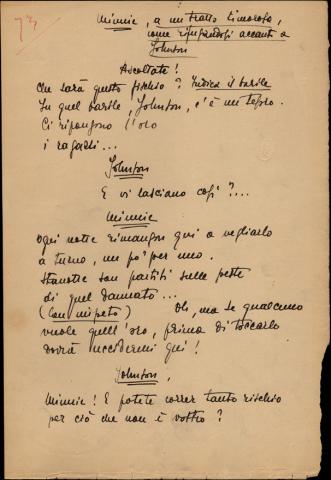 73
Minnie, a un tratto timorosa,
come rifugiandosi accanto a
Johnson
Ascoltate!
Che sarà questo fischio? Indica il barile
In quel barile, Johnson, c'è un tesoro.
Ci ripongono l'oro
i ragazzi...
Johnson
E vi lasciano così?...
Minnie
Ogni notte rimangon qui a vegliarlo
a turno, un po' per uno.
Stanotte son partiti sulle peste
di quel dannato...
(Con impeto) Oh, ma se qualcuno
vuole quell'oro, prima di toccarlo
dovrà uccidermi qui!
Johnson,
Minnie! E potete correr tanto rischio
per ciò che non è vostro?